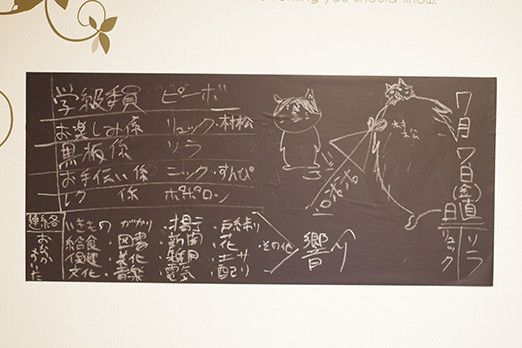 something you should know.
学級委員 ピーボ
お楽しみ係 リュック・村松
黒板係 ソラ
お手伝い係 ニック・すんぴ
レク係 ポポロン
連絡
おなか
いきもの
給食
保健
文化
がかり
図書
美化
音楽
・掲示
・新聞
・雑用
・電気
・戸締り
・花
・エサ
・配り
その他
響
村松
7月7日(金)
日直
ソラ
リュック